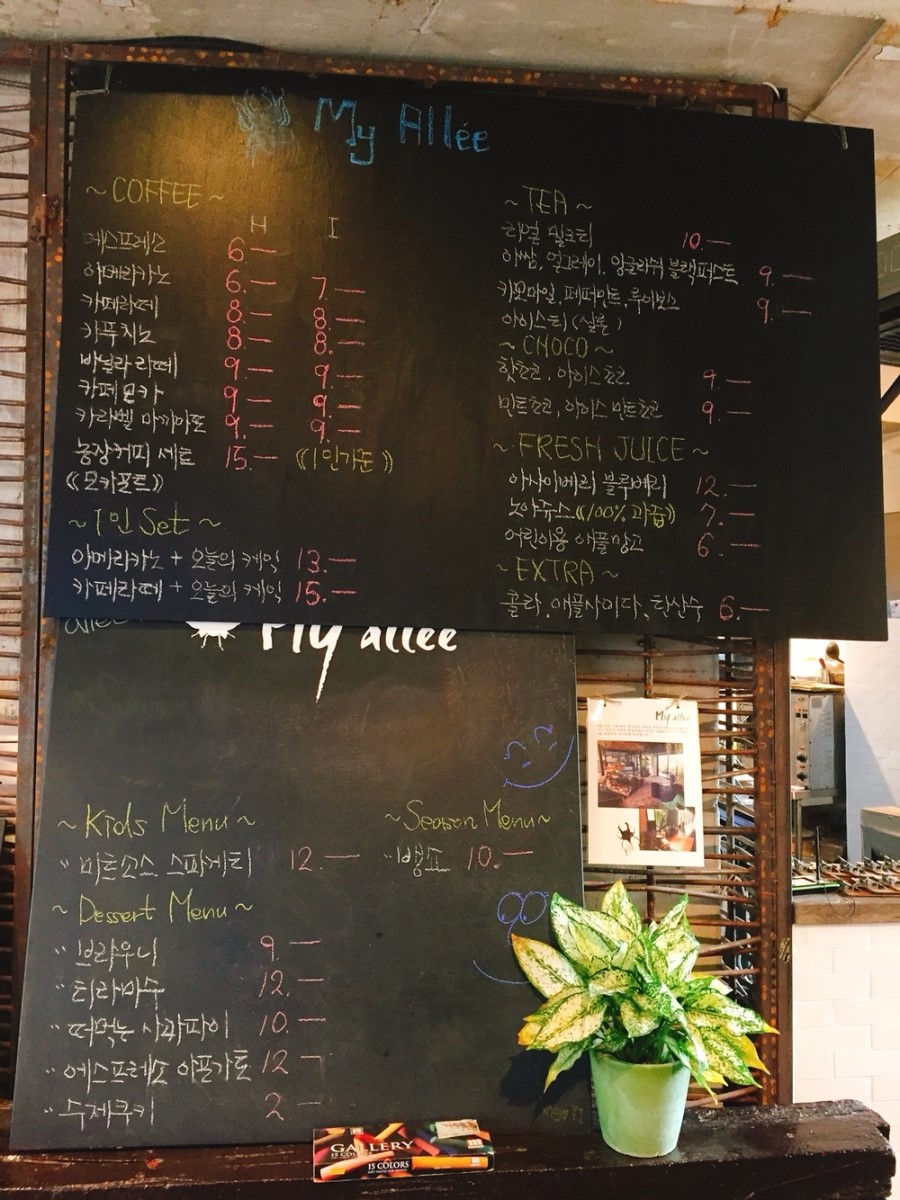 My Allée
~ COFFEE ~
H I
에스프레소 6.—
아메리카노 6.— 7.—
카페라떼 8.— 8.—
카푸치노 8.— 8.—
바닐라 라떼 9.— 9.—
카페 모카 9.— 9.—
카라멜 마끼아또 9.— 9.—
농장커피 세트 15.— (1인기준)
《모카포트》
~ 1인 Set ~
아메리카노 + 오늘의 케익 13.—
카페라떼 + 오늘의 케익 15.—
~ TEA ~
리얼 밀크티 10.—
아쌈, 얼그레이, 잉글리쉬 블랙퍼스트 9.—
키모마일, 페퍼민트, 루이보스 9.—
아이스티 (실론)
~ CHOCO ~
핫쵸코, 아이스쵸코 9.—
민트쵸코, 아이스 민트쵸코 9.—
~ FRESH JUICE ~
아사이베리 블루베리 12.—
노아쥬스《100% 과즙》 7.—
어린이용 애플망고 6.—
~ EXTRA ~
콜라, 애플사이다, 탄산수 6.—
allée
My allée
~ Kids Menu ~
미트소스 스파게티 12.—
~ Season Menu ~
뱅쇼 10.—
~ Dessert Menu ~
브라우니 9.—
티라미수 12.—
떠먹는 사과파이 10.—
에스프레소 아포가토 12.—
수제쿠키 2.—
My allée
GALLERY
15 COLORS